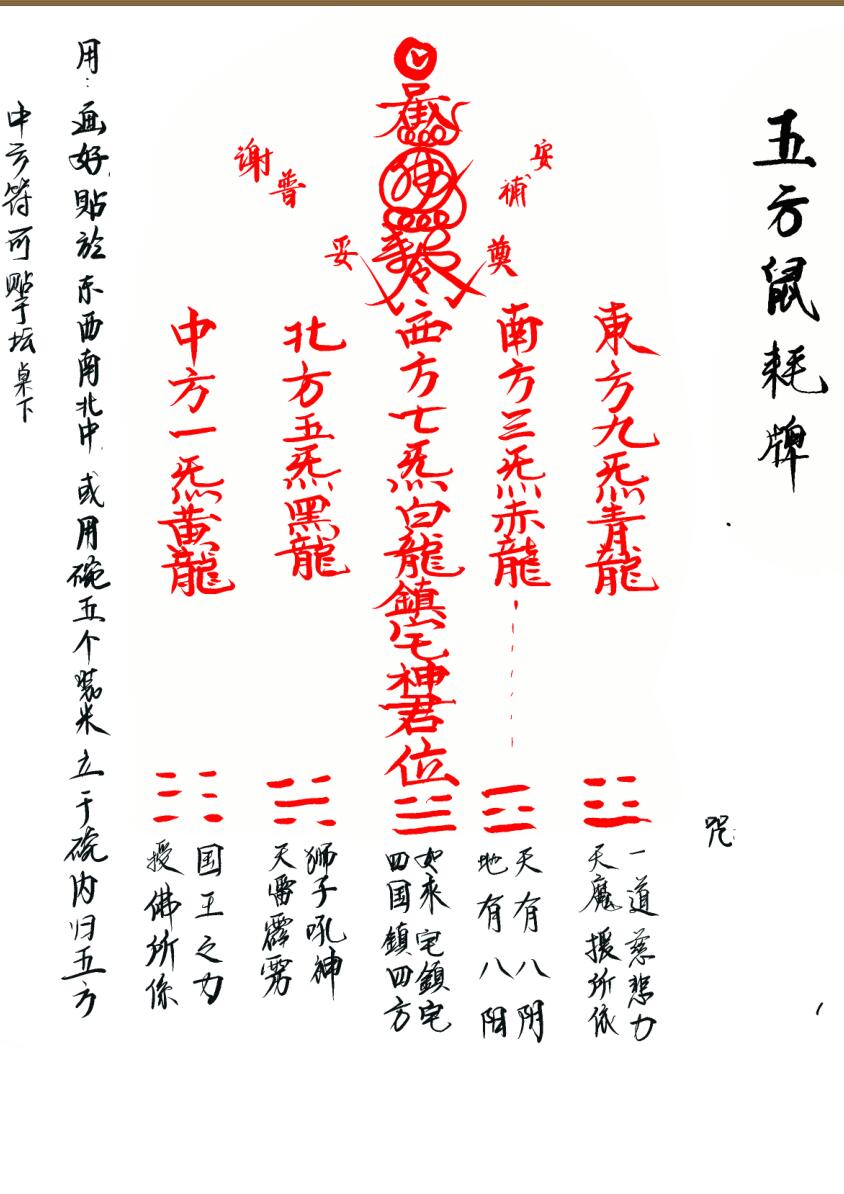 五方鼠耗牌
咒:
東方九炁青龍
一道慈悲力
天魔援所依
南方三炁赤龍
天有八阴
地有八阳
安補奠
西方七炁白龍鎮宅神君位
如来宅鎮宅
四国鎮四方
北方五炁黑龍
狮子吼神
天雷霹雳
中方一炁黄龍
国王之力
授佛所係
謝普妥
用:画好貼於东西南北中.或用碗五个装米立于碗内归五方
中方符可贴于坛桌下